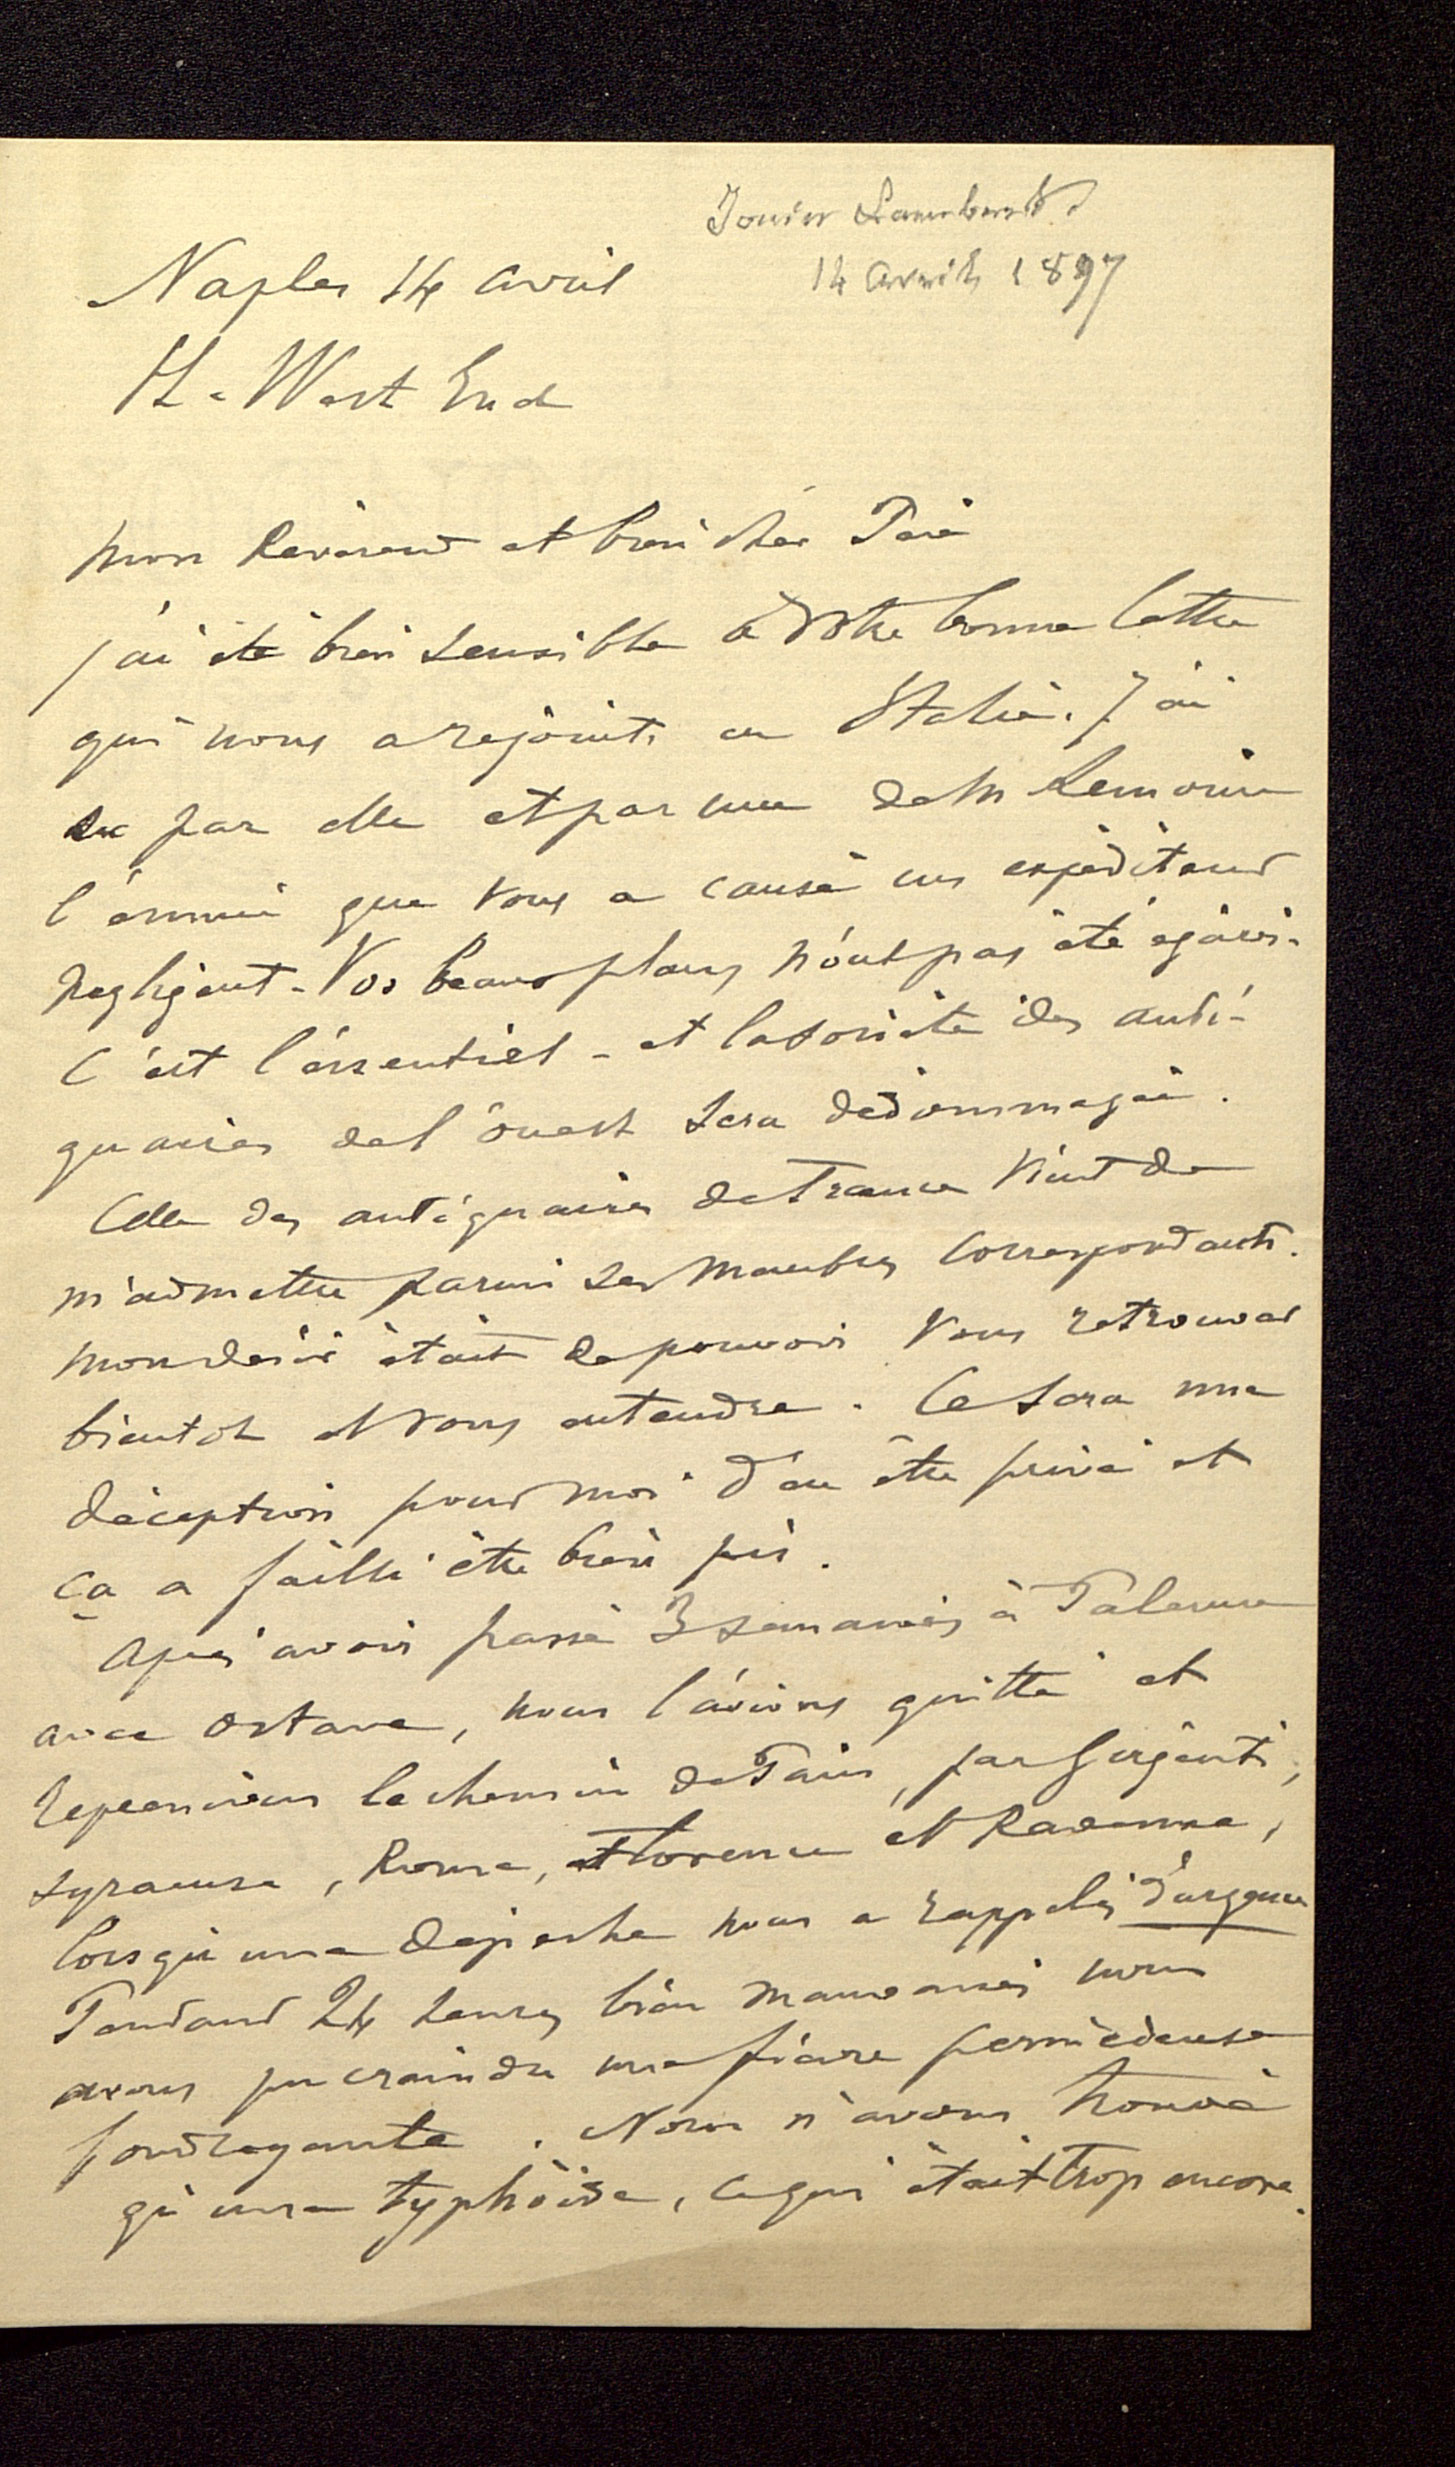 14 Avril 1897
Naples 14 avril
H. West End
Mon Révérend et bien cher Père
j'ai été bien sensible à votre bonne lettre
qui nous a rejoints en Italie. J'ai
su par elle et par une de M Lemoine
l'ennui que vous a causé un expéditeur
négligent. Vos beaux plans n'ont pas été égarés.
C'est l'essentiel - et la société des anti-
quaires de l'Ouest sera dédommagée.
Celle des antiquaires de France vient de
m'admettre parmi ses membres correspondants.
Mon désir était de pouvoir vous retrouver
bientôt et vous entendre. Ce sera une
déception pour moi d'en être privé et
ça a failli être bien pis.
Après avoir passé 3 semaines à Palerme
avec Octave, nous l'avions quitté et
reprenions le chemin de Paris, par Girgenti,
Syracuse, Rome, Florence et Ravenne,
lorsqu'une dépêche nous a rappelés d'urgence
Pendant 24 heures bien mauvaises nous
avons pu craindre une fièvre pernicieuse
foudroyante. Nous n'avons trouvé
qu'une typhoïde, ce qui était trop encore.